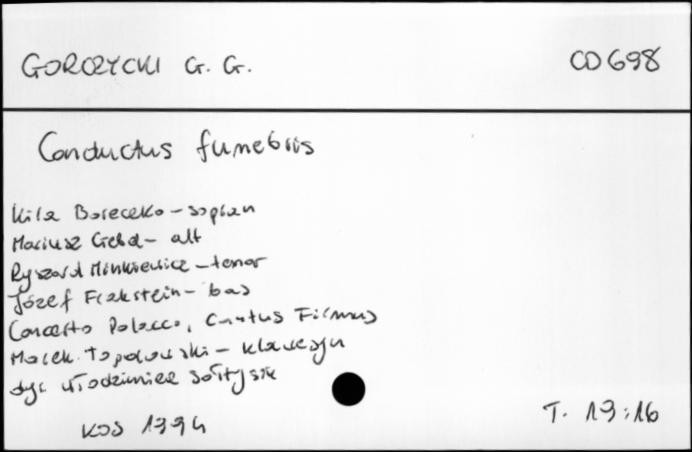 GORCZYCKI G. G.
CD 698
Conductus funebris
Kila Boreczko - sopran
Mariusz Cieśla - alt
Ryszard Minkiewicz - tenor
Józef Frakstein - bas
Concerto Polacco, Cantus Firmus
Marek Toporowski - klawesyn
dyr. Włodzimierz Sołtysik
KOS 1994
T. 19:16